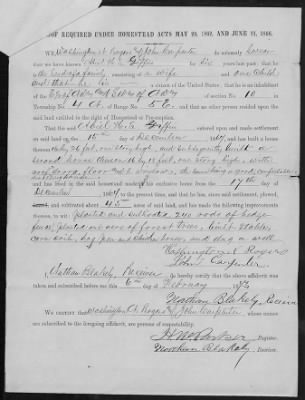 PROOF REQUIRED UNDER HOMESTEAD ACTS MAY 20, 1862, AND JUNE 21, 1866.
We, Washington A. Rogers & John Carpenter do solemnly swear
that we have known Abiel H. L. Griffin for five years last past; that he
is the head of a family, consisting of a wife and one child
and that he is a citizen of the United States; that he
of section No. 10 in
Township No. 4 of Range No. 5 E. and that no other person resided upon the said
land entitled to the right of Homestead or Pre-emption.
That the said Abiel H. L. Griffin entered upon and made
settlement on said land on the 15th day of December 1867, and has built a house
thereon one story high, and subsequently built a
second house thereon 16 by 18 feet, one story high, with
roof, doors, floor and windows,
and has lived in the said homestead and made it his exclusive home from the 17th day of
December 1867, to the present time, and that he has, since said settlement, plowed,
and cultivated about 45 acres of said land, and has made the following improvements
thereon, to wit: planted and cultivated 240 rods of hedge
fence, planted acres of forest trees, built stables,
corn crib, hog pen and chicken house, and dug a well
Washington A. Rogers
John Carpenter
I, Nathan Blakely, Receiver do hereby certify that the above affidavit was
taken and subscribed before me this 6th day of February 1873
Nathan Blakely, Receiver
We certify that Washington A. Rogers & John Carpenter whose names
are subscribed to the foregoing affidavit, are persons of respectability.
Register.
Nathan Blakely Receiver.